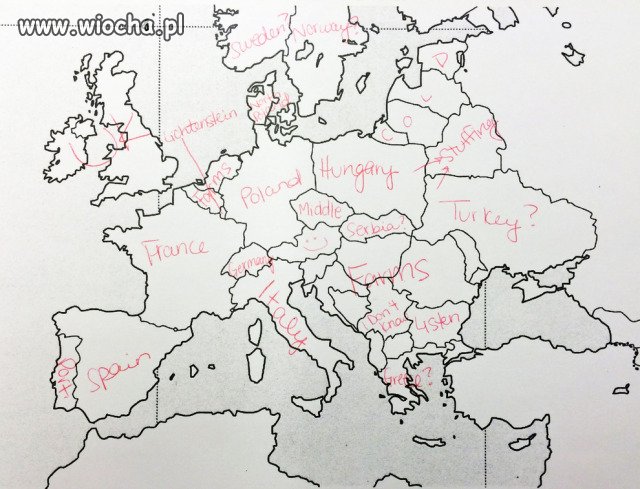 www.wiocha.pl
Sweden?
Norway?
D
UK
Lichtenstein
C
O
Stuffing
Farms
Poland
Hungary
Middle
Serbia?
Turkey?
France
Germany
Farms
Italy
I Don't
know
Port
Spain
Greece?